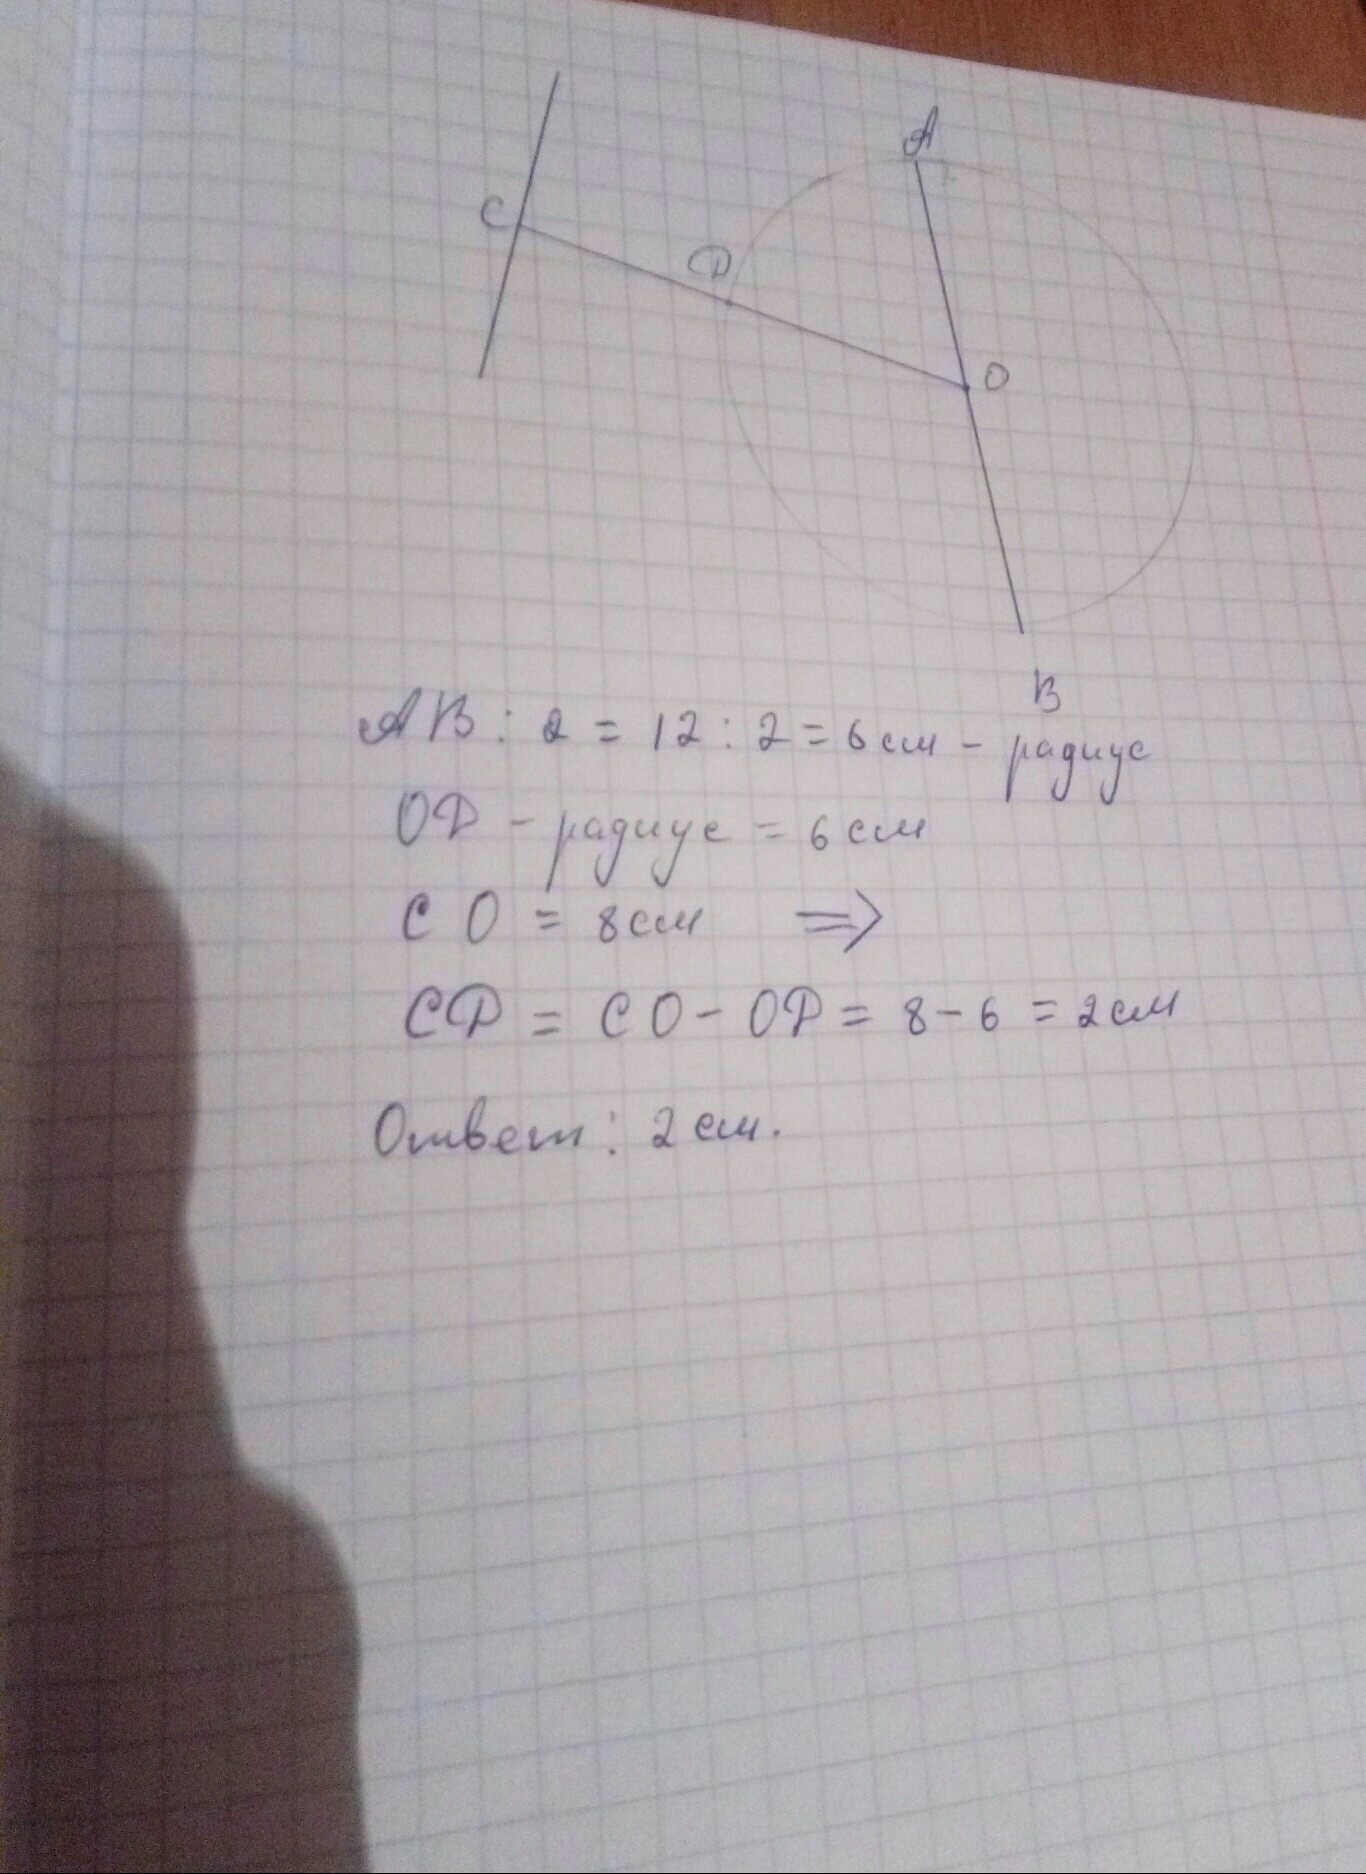 A
C
D
O
B
AB : 2 = 12 : 2 = 6 см - радиус
OD - радиус = 6 см
CO = 8 см ⇒
CD = CO - OD = 8 - 6 = 2 см
Ответ: 2 см.